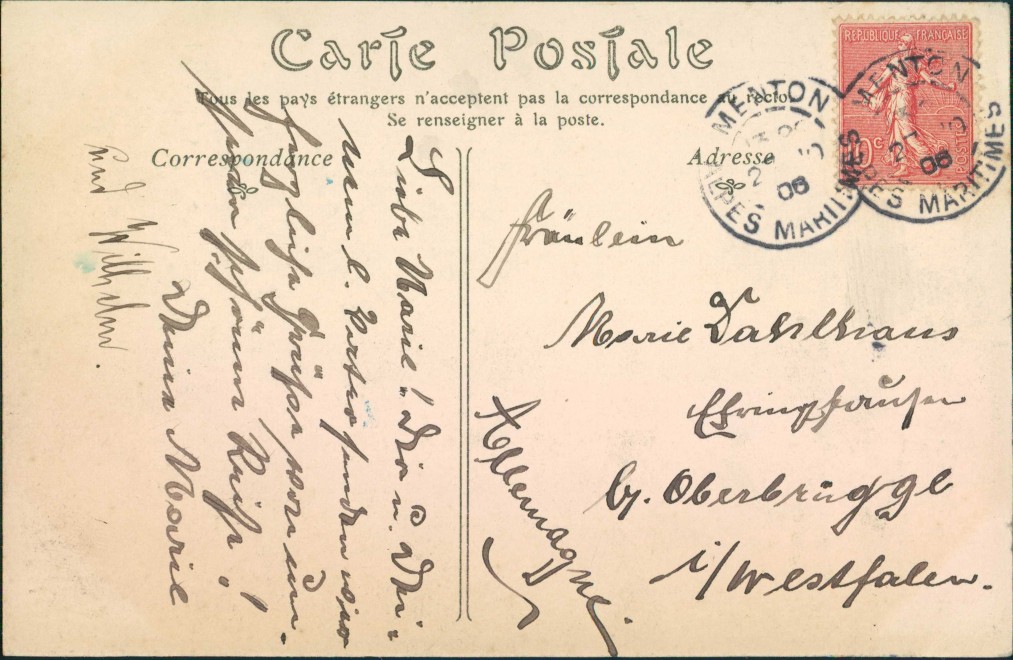 Carte Postale
Tous les pays étrangers n'acceptent pas la correspondance au recto.
Se renseigner à la poste.
Correspondance
Adresse
REPUBLIQUE FRANÇAISE
10c POSTES
MENTON
2 06
ALPES MARITIMES
MENTON
2 06
ALPES MARITIMES
Liebe Marie! Dir u. Dei-
nem l. senden wir
herzliche Grüße von un-
serer schönen Reise!
Deine Marie
und Wilhelm.
Fräulein
Marie Dahlhaus
Ehringhausen
b/. Oberbrügge
i/Westfalen.
Allemagne.